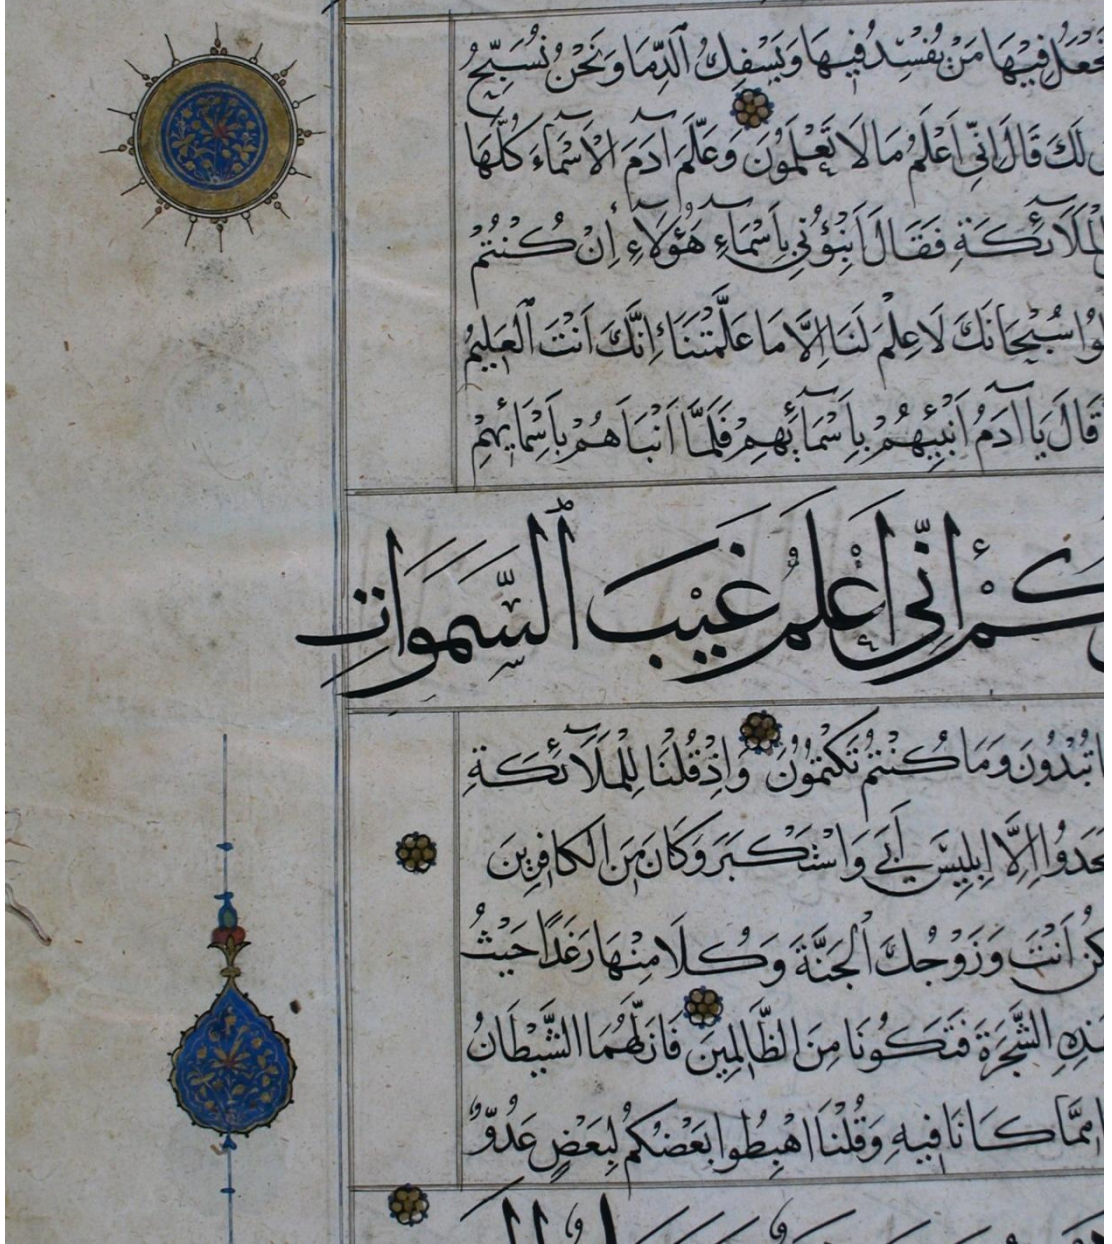 تَجْعَلُ فِيْهَا مَنْ يُفْسِدُ فِيهَا وَيَسْفِكُ ٱلدِّمَا وَنَحْنُ نُسَبِّحُ
لَكَ قَالَ اِنّيِ اَعْلَمُ مَا لَا تَعْلَمُونَ وَعَلَّمَ اٰدَمَ الْاَسْمَآءَ كُلَّهَا
الْمَلَآئِكَةِ فَقَالَ اَنْبِؤُنيِ بِاَسْمَآءِ هٰؤُلَآءِ اِنْ كُنْتُمْ
سُبْحَانَكَ لَا عِلْمَ لَنَا اِلَّا مَا عَلَّمْتَنَا اِنَّكَ اَنْتَ ٱلْعَلِيمُ
قَالَ يَا اٰدَمُ اَنْبِئْهُمْ بِاَسْمَآئِهِمْ فَلَمَّا اَنْبَاَهُمْ بِاَسْمَائِهِمْ
كُمْ اِنّيِ اَعْلَمُ غَيْبَ ٱلسَّمٰوَاتِ
تُبْدُونَ وَمَا كُنْتُمْ تَكْتُمُونَ وَاِذْ قُلْنَا لِلْمَلَآئِكَةِ
اِلَّا اِبْلِيْسَ اَبٰي وَاسْتَكْبَرَ وَكَانَ مِنَ الْكَافِرِينَ
اَنْتَ وَزَوْجُكَ ٱلْجَنَّةَ وَكُلَا مِنْهَا رَغَدًا حَيْثُ
الشَّجَرَةَ فَتَكُونَا مِنَ الظَّالِمِينَ فَاَزَلَّهُمَا الشَّيْطَانُ
مِمَّا كَانَا فِيهِ وَقُلْنَا اهْبِطُوا بَعْضُكُمْ لِبَعْضٍ عَدُوٌّ